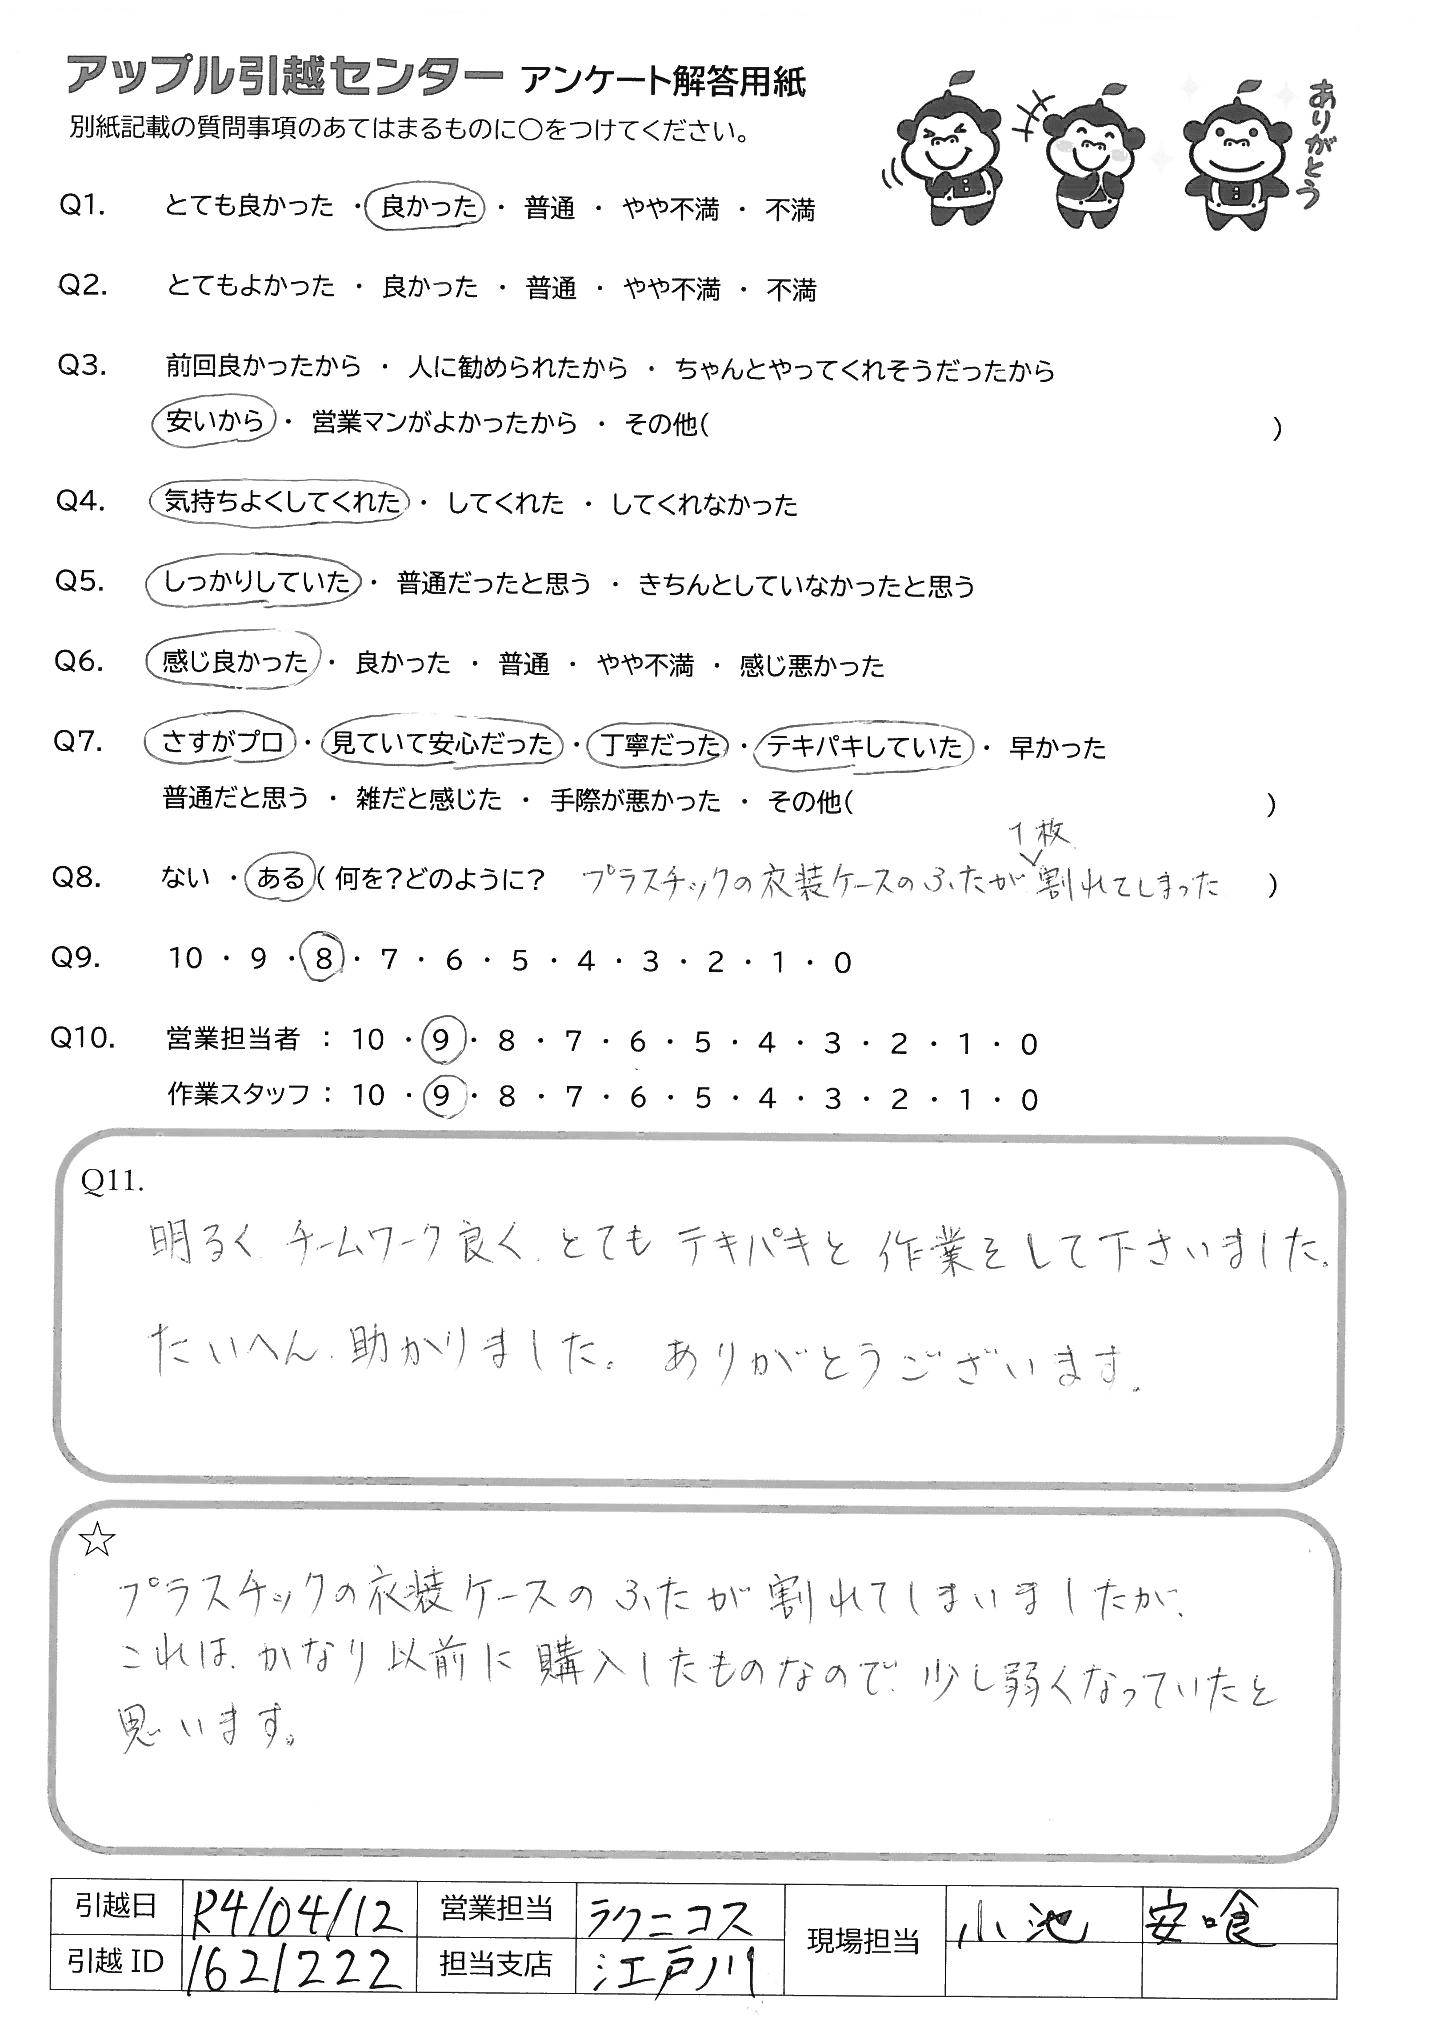 アップル引越センター アンケート解答用紙
別紙記載の質問事項のあてはまるものに○をつけてください。
ありがとう
Q1. とても良かった ・ 良かった ・ 普通 ・ やや不満 ・ 不満
Q2. とてもよかった ・ 良かった ・ 普通 ・ やや不満 ・ 不満
Q3. 前回良かったから ・ 人に勧められたから ・ ちゃんとやってくれそうだったから
安いから ・ 営業マンがよかったから ・ その他( )
Q4. 気持ちよくしてくれた ・ してくれた ・ してくれなかった
Q5. しっかりしていた ・ 普通だったと思う ・ きちんとしていなかったと思う
Q6. 感じ良かった ・ 良かった ・ 普通 ・ やや不満 ・ 感じ悪かった
Q7. さすがプロ ・ 見ていて安心だった ・ 丁寧だった ・ テキパキしていた ・ 早かった
普通だと思う ・ 雑だと感じた ・ 手際が悪かった ・ その他( )
1枚
Q8. ない ・ ある ( 何を?どのように? プラスチックの衣装ケースのふたが割れてしまった )
Q9. 10 ・ 9 ・ 8 ・ 7 ・ 6 ・ 5 ・ 4 ・ 3 ・ 2 ・ 1 ・ 0
Q10. 営業担当者 : 10 ・ 9 ・ 8 ・ 7 ・ 6 ・ 5 ・ 4 ・ 3 ・ 2 ・ 1 ・ 0
作業スタッフ : 10 ・ 9 ・ 8 ・ 7 ・ 6 ・ 5 ・ 4 ・ 3 ・ 2 ・ 1 ・ 0
Q11.
明るく、チームワーク良く、とても テキパキと 作業をして下さいました。
たいへん、助かりました。 ありがとうございます。
☆
プラスチックの衣装ケースのふたが割れてしまいましたが、
これは、かなり以前に購入したものなので、少し弱くなっていたと
思います。
引越日 R4/04/12 営業担当 ラクニコス 現場担当 小池 安喰
引越ID 1621222 担当支店 江戸川